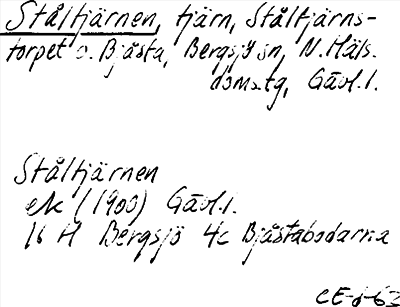 Ståltjärnen, tjärn, Ståltjärns-
torpet o. Bjåsta, Bergsjö sn, N. Häls.
doms.tg, Gävl. l.
Ståltjärnen
ek (1900) Gävl. l.
16 H Bergsjö 4c Bjåstabodarna
CE-j-63